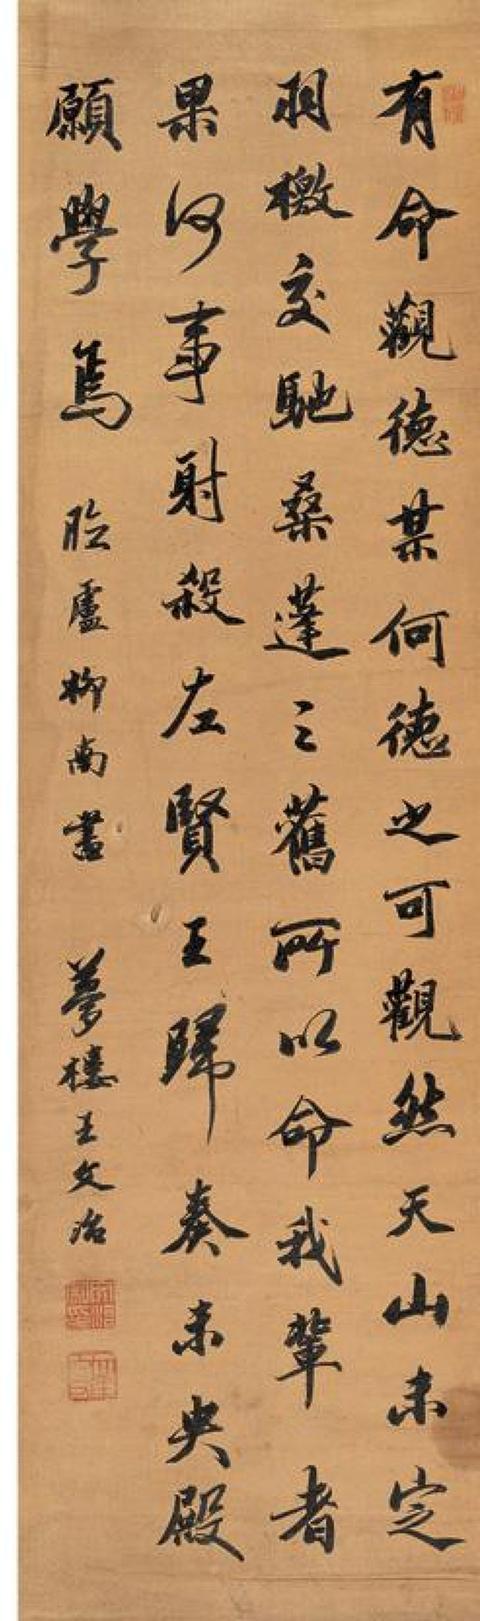 有命觀德某何德之可觀然天山未定
羽檄交馳桑蓬之舊所以命我輩者
果何事射殺左賢王歸奏未央殿
願學焉 臨盧柳南書 夢樓王文治